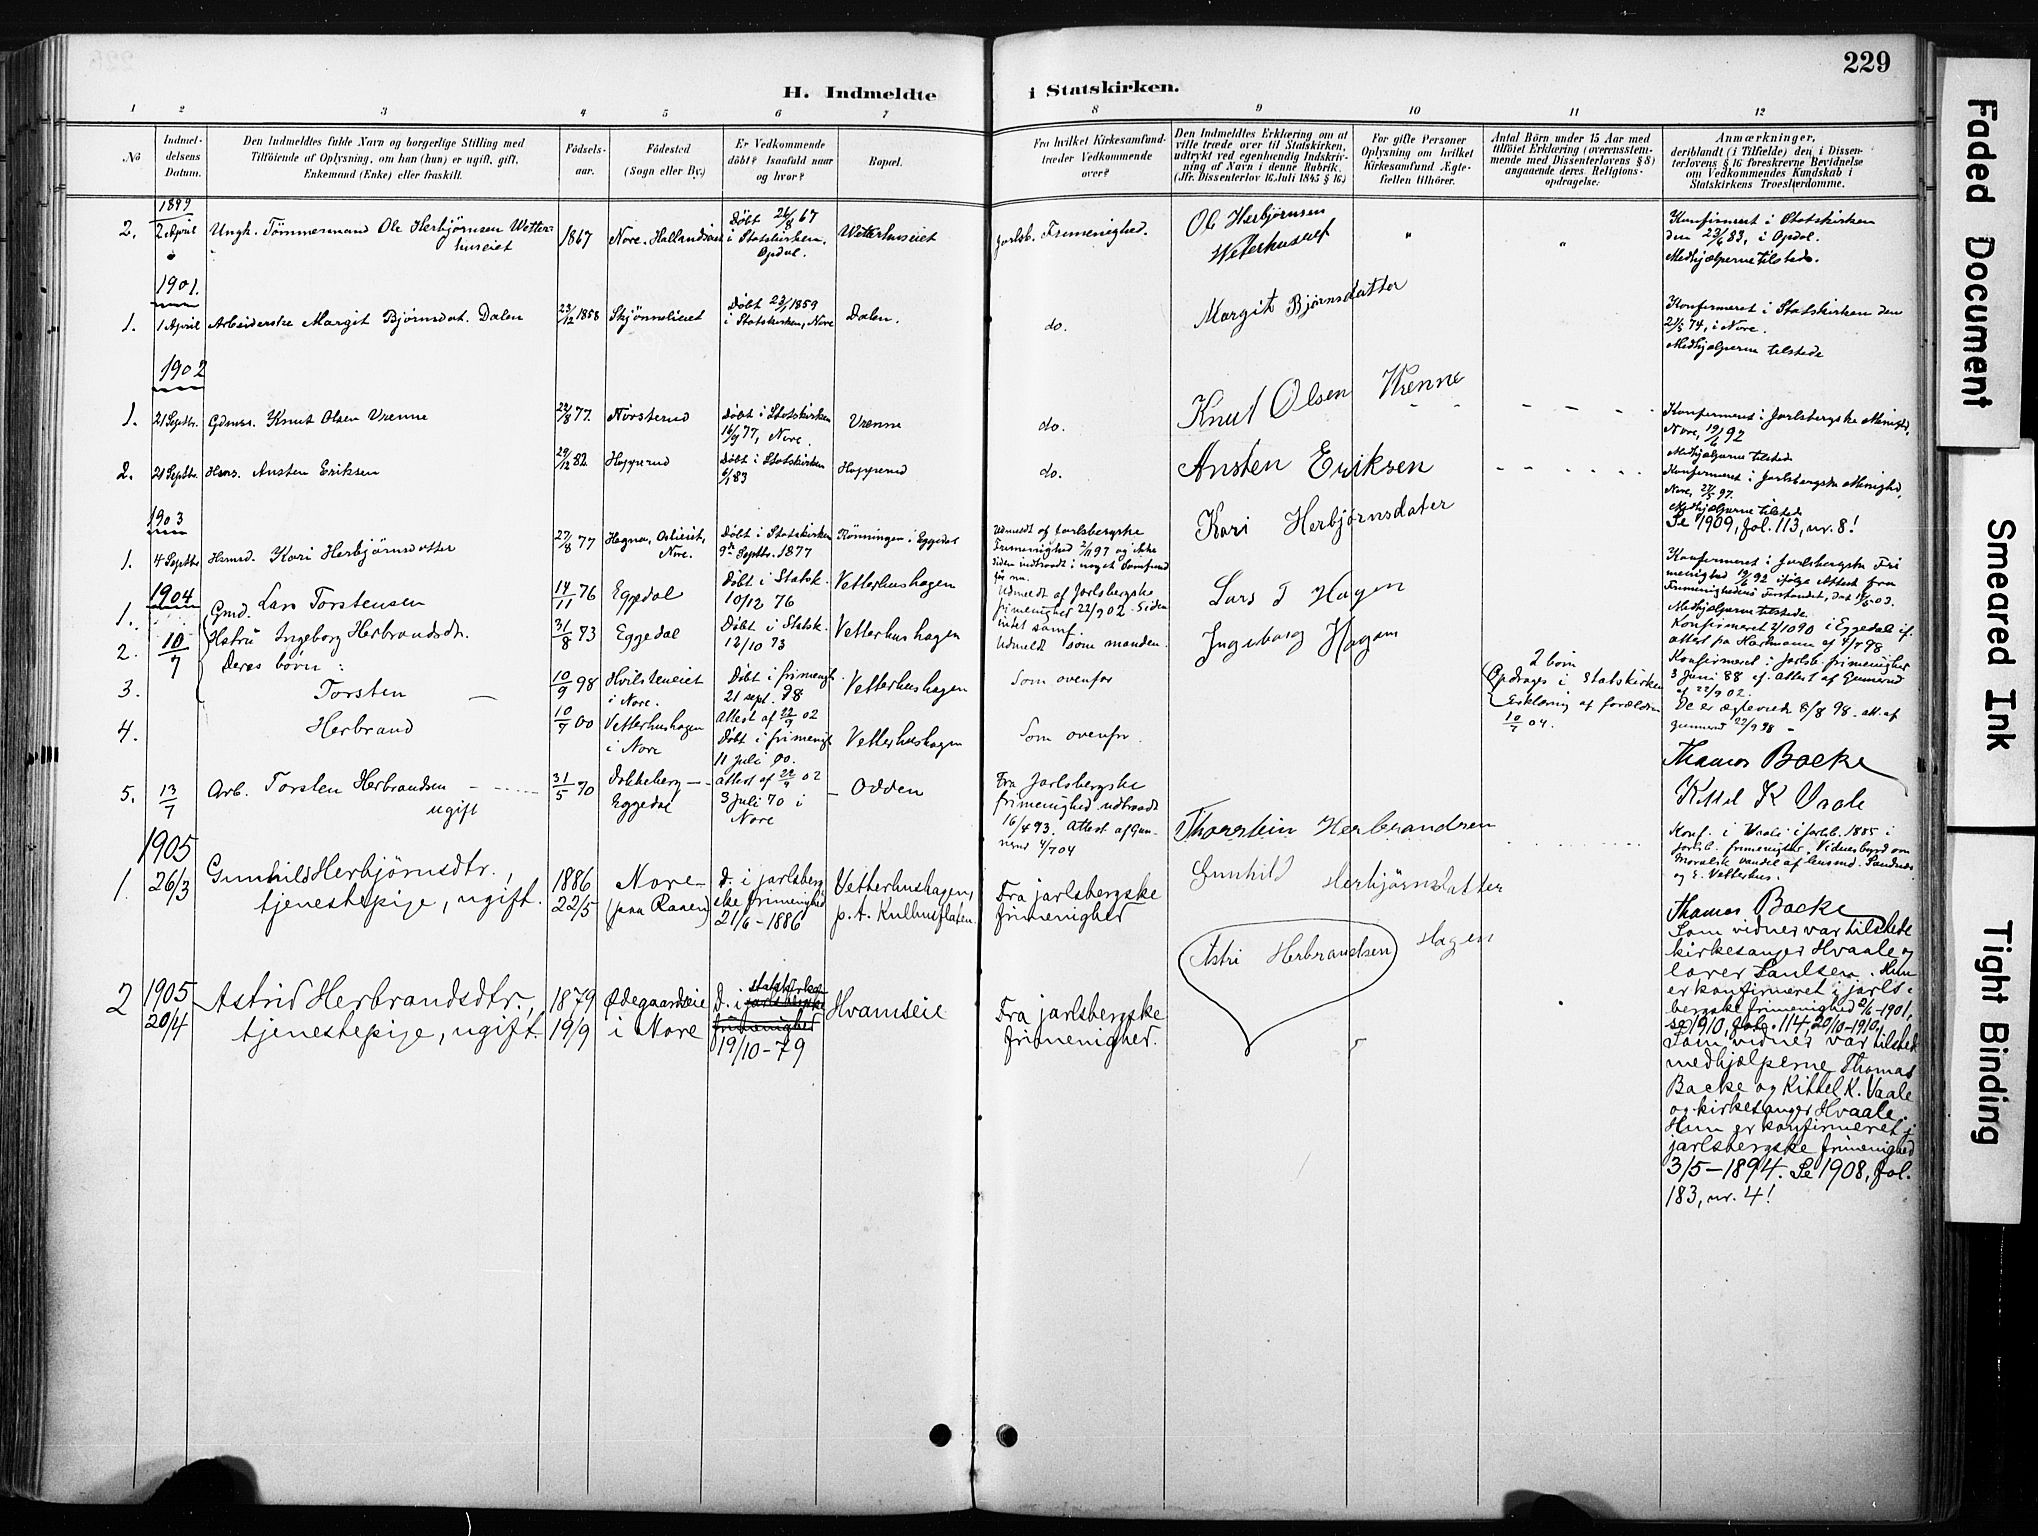 229
H. Indmeldte i Statskirken.
1 2 3 4 5 6 7 8 9 10 11 12
No
Indmel-
delsens
Datum.
Den Indmeldtes fulde Navn og borgerlige Stilling med
Tilföiende af Oplysning, om han (hun) er ugift, gift,
Enkemand (Enke) eller fraskilt.
Födsels-
aar.
Födested
(Sogn eller By.)
Er Vedkommende
döbt? Isaafald naar
og hvor?
Bopæl.
Fra hvilket Kirkesamfund-
træder Vedkommende
over?
Den Indmeldtes Erklæring om at
ville træde over til Statskirken,
udtrykt ved egenhændig Indskriv-
ning af Navn i denne Rubrik.
(Jfr. Dissenterlov 16 Juli 1845 § 16.)
For gifte Personer
Oplysning om hvilket
Kirkesamfund Ægte-
fællen tilhörer.
Antal Börn under 15 Aar med
tilföiet Erklæring (overensstem-
mende med Dissenterlovens § 8)
angaaende deres Religions-
opdragelse.
Anmærkninger,
deriblandt (i Tilfælde) den i Dissen-
terlovens § 16 foreskrevne Bevidnelse
om Vedkommendes Kundskab i
Statskirkens Troeslærdomme.
1899
2. 2 April Ungk. Tømmermand Ole Herbjørnsen Wetter-
huseiet
1867
Nore.
Døbt 26/8 67
i Statskirken,
Opdal.
Wetterhuseiet
Jarlsb. Frimenighed.
Ole Herbjørnsen
Weterhuseiet
"
"
Konfirmert i Statskirken
den 23/6 83, i Opdal.
Medhjælperne tilstede.
1901.
1. 1 April Arbeiderske Margit Bjørnsdat. Dalen
23/12 1858
Skjønneleiet
Døbt 23/1 1859
i Statskirken, Nore
Dalen.
do.
Margit Bjørnsdatter
Konfirmeret i Statskirken den
21/6 74, i Nore.
Medhjælperne tilstede
1902
1. 21 Septbr. Gdmss. Knut Olsen Vrenne
22/8 77.
Norsterud
Døbt i Statskirken
16/9 77, Nore.
Vrenne
do.
Knut Olsen Vrenne
Konfirmeret i Jarlsbergske Menighd,
Nore, 19/6 92
Medhjælperne tilstede
2. 21 Septbr. Hans. Ansten Eriksen
29/12 82
Hopperud
Døbt i Statskirken
6/1 83
Hopperud
do.
Ansten Eriksen
Konfirmeret i Jarlsbergske Menighd,
Nore, 27/5 97.
Medhjælperne tilstede
Se 1909, fol. 113, nr. 8!
1903
1. 4 Septbr Hsmd. Kari Herbjørnsdatter
27/8 77
Nore.
Døbt i Statskirken
9de Septbr. 1877
Rønningen i Eggedal
Udmeldt af Jarlsbergske
Frimenighed 2/11 97 og ikke
siden indtraadt i noget Samfund
før nu.
Kari Herbjørnsdater
Konfirmeret i Jarlsbergske Fri
menighed 19/6 92 ifølge Attest fra
Frimenighedens Forstander, dat
Medhjælperne tilstede.
1904
1. Gmd. Lars Torstensen
14/11 76
Eggedal
Døbt i Statsk.
10/12 76
Vetterhushagen
Udmeldt af Jarlsbergske
frimenighet 22/9 02. Siden
intet samf.
Lars T Hagen
Konfirmeret 2/10 90 i Eggedal if.
attest fra Hartmann af 4/7 98
2. 10/7 Hstru Ingeborg Herbrandsdr.
31/8 73
Eggedal
Døbt i Statsk.
12/10 73
Vetterhushagen
Udmeldt som manden
Ingeborg Hagen
Konfirmeret i Jarlsb. frimenighet
3 Juni 88 ef. Attest af Gunnerud
af 22/9 02.
De er ægteviede 8/8 98. att. af
Gunnerud 22/9 98 -
Deres børn:
3. Torsten
10/9 98
Hvilsteneiet
i Nore.
Døbt i frimenigh.
21 sept. 98
Attest af 22/9 02
Vetterhushagen
Som ovenfor
2 børn
Opdrages i Statskirken
Erklæring af forældren
10/7 04.
4. Herbrand
10/7 00
Vetterhushagen
i Nore
Døbt i frimenigh
11 Juli 00.
attest af 22/9 02
Vetterhushagen
Som ovenfor
Thomas Backe
Kittel K Vaale
5. 13/7 Arb. Torsten Herbrandsen
ugift
31/5 70
Dokkeberg -
Eggedal
3 Juli 70 i
Nore
Odden
Fra Jarlsbergske
frimenighed udtraadt
16/4 93. Attest af Gun-
nerud 4/7 04
Thorstein Herbrandsen
Konf. i Jarlsb. 1885 i
Jarlsb. frimenighet. Vidnesbyrd om
Moralsk vandel af
og E. Vetterhus.
Thomas Backe
1905
1. 26/3 Gunhild Herbjørnsdtr.,
tjenestepige, ugift.
1886
22/5
Nore -
(paa Raaen)
D. i jarlsberg
ske frimenighed
21/6 - 1886
Vetterhushagen,
p. t. Kulhusflaten.
Fra jarlsbergske
frimenighed
Gunhild Herbjørnsdatter
Som vidner var tilstede
kirkesanger Hvaale og
lærer Paulsen. Hun
er konfirmeret i jarls-
bergske frimenighed 2/6-1901,
se 1910, fol. 114, 20/10-1910.
2 1905
20/4
Astrid Herbrandsdtr.,
tjenestepige, ugift.
1879
19/9
Ødegaardseie
i Nore
D. i statskirken
jarlsbergske
frimenighed
19/10-79
Hvamseie
Fra jarlsbergske
frimenighed.
Astri Herbrandsen Hagen
Som vidner var tilsted
medhjælperne Thomas
Backe og Kittel K. Vaale
og kirkesanger Hvaale.
Hun er konfirmeret i
jarlsbergske frimenighed
3/5-1894. Se 1908, fol.
183, nr. 4!
Faded Document
Smeared Ink
Tight Binding